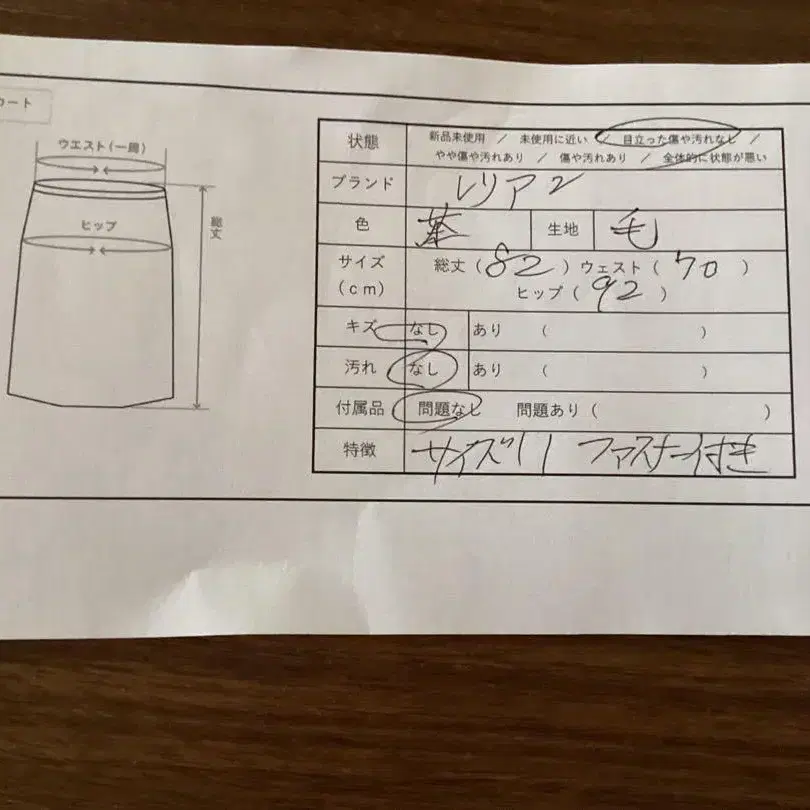 カート
ウエスト(一周)
ヒップ
総丈
状態 新品未使用 / 未使用に近い / 目立った傷や汚れなし /
やや傷や汚れあり / 傷や汚れあり / 全体的に状態が悪い
ブランド レリアン
色 茶 生地 毛
サイズ 総丈(82)ウェスト(70)
(cm) ヒップ(92)
キズ なし あり ( )
汚れ なし あり ( )
付属品 問題なし 問題あり( )
特徴 サイズ11 ファスナー付き